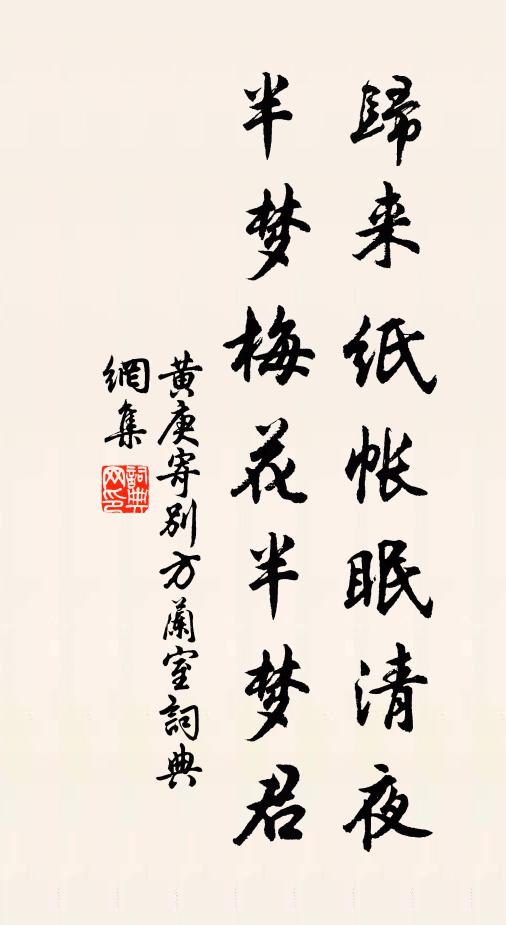 歸来纸帐眠清夜
半梦梅花半梦君
黃庚寄别方蘭室詞典
網集
詞典网印